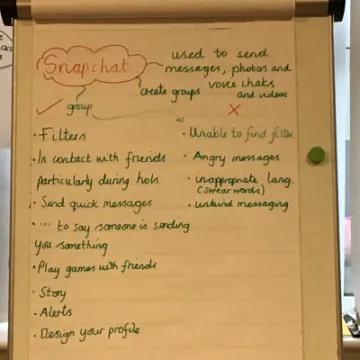 Snapchat
used to send
messages, photos and
voice chats
and videos
create groups
group
• Filters
• In contact with friends
particularly during hols
• Send quick messages
• ... to say someone is sending
you something
• Play games with friends
• Story
• Alerts
• Design your profile
• Unable to find
• Angry messages
• inappropriate lang.
(swear words)
• unkind messaging